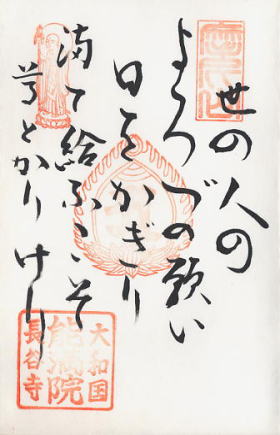 世の人の
よろづの願い
日をかぎり
満て給ふこそ
尊とかりけれ
大和国
能満院
長谷寺